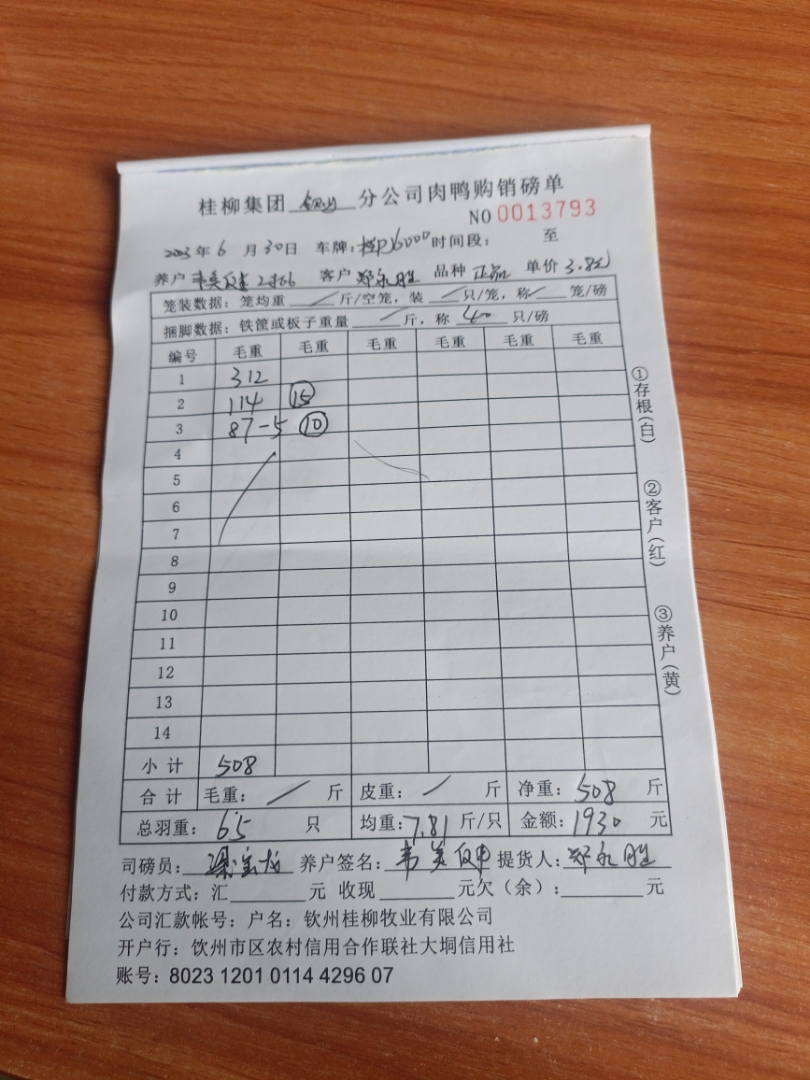 桂柳集团 钦州 分公司肉鸭购销磅单
NO 0013793
2023年6月30日 车牌: 时间段: 至
养户 客户 郑永胜 品种 正品 单价 3.8元
笼装数据: 笼均重 / 斤/空笼, 装 / 只/笼, 称 / 笼/磅
捆脚数据: 铁筐或板子重量 / 斤, 称 40 只/磅
编号 毛重 毛重 毛重 毛重 毛重 毛重
1 312
2 114 ⑮
3 87-5 ⑩
4
5
6
7
8
9
10
11
12
13
14
小计 508
合计 毛重: / 斤 皮重: / 斤 净重: 508 斤
总羽重: 65 只 均重: 7.81 斤/只 金额: 1930 元
司磅员: 养户签名: 提货人: 郑永胜
付款方式: 汇 元 收现 元欠(余): 元
公司汇款帐号: 户名: 钦州桂柳牧业有限公司
开户行: 饮州市区农村信用合作联社大垌信用社
账号: 8023 1201 0114 4296 07
①存根(白)
②客户(红)
③养户(黄)